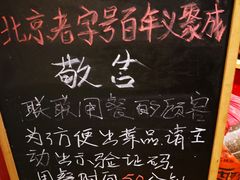 北京老字号百年义聚成
敬告
联联用餐的顾客
为了方便出菜品.请主
动出示验证码.
用餐时间50分钟